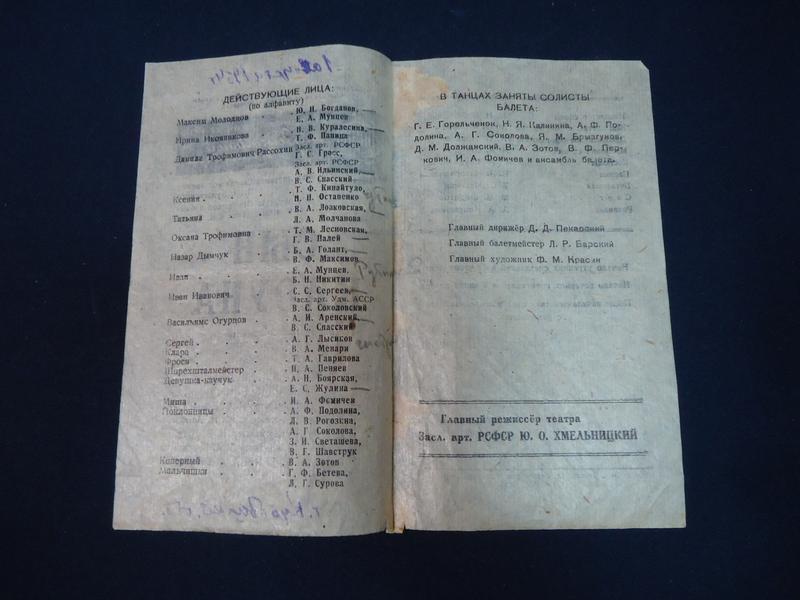 ДЕЙСТВУЮЩИЕ ЛИЦА:
(по алфавиту)
Максим Молодцов . Ю. Н. Богданов,
Е. А. Мунцев
Ирина Иконникова . Н. В. Куралесина,
Т. Ф. Панина
Данила Трофимович Рассохин Засл. арт. РСФСР
Г. С. Гросс,
Засл. арт. РСФСР
А. В. Ильинский,
В. С. Спасский
Ксения . . . Т. Ф. Кинайтуло,
Н. Н. Остапенко
Татьяна . . . В. А. Лозковская,
Л. А. Молчанова
Оксана Трофимовна . Т. М. Лесновская,
Г. В. Палей
Назар Думчук . . Б. А. Голант,
В. Ф. Максимов
Иван . . . Е. А. Мунцев,
Б. Н. Никитин
Иван Иванович . . С. С. Сергеев,
Засл. арт. Удм. АССР
В. С. Соколовский
Васильямс Огурцов . А. И. Аренский,
В. С. Спасский
Сергей . . . А. Г. Лысиков
Клара . . . В. А. Менари
Фрося . . . Т. А. Гаврилова
Шпрехшталмейстер . Н. А. Пеняев
Девушка-каучук . А. Н. Боярская,
Е. С. Жулина
Миша . . . И. А. Фомичев
Поклонницы . . А. Ф. Подолина,
Л. В. Рогозина,
А. Г. Соколова,
З. И. Светашева,
В. Г. Шавструк
Ковёрный . . . В. А. Зотов
Мальчишки . . Г. Ф. Бетева,
Л. Г. Сурова
В ТАНЦАХ ЗАНЯТЫ СОЛИСТЫ
БАЛЕТА:
Г. Е. Горельченок, Н. Я. Калинина, А. Ф. По-
долина, А. Г. Соколова, Я. М. Брызгунов,
Д. М. Должанский, В. А. Зотов, В. Ф. Пер-
кович, И. А. Фомичев и ансамбль балета.
Главный дирижёр Д. Д. Пекарский
Главный балетмейстер Л. Р. Барский
Главный художник Ф. М. Красин
Главный режиссёр театра
Засл. арт. РСФСР Ю. О. ХМЕЛЬНИЦКИЙ